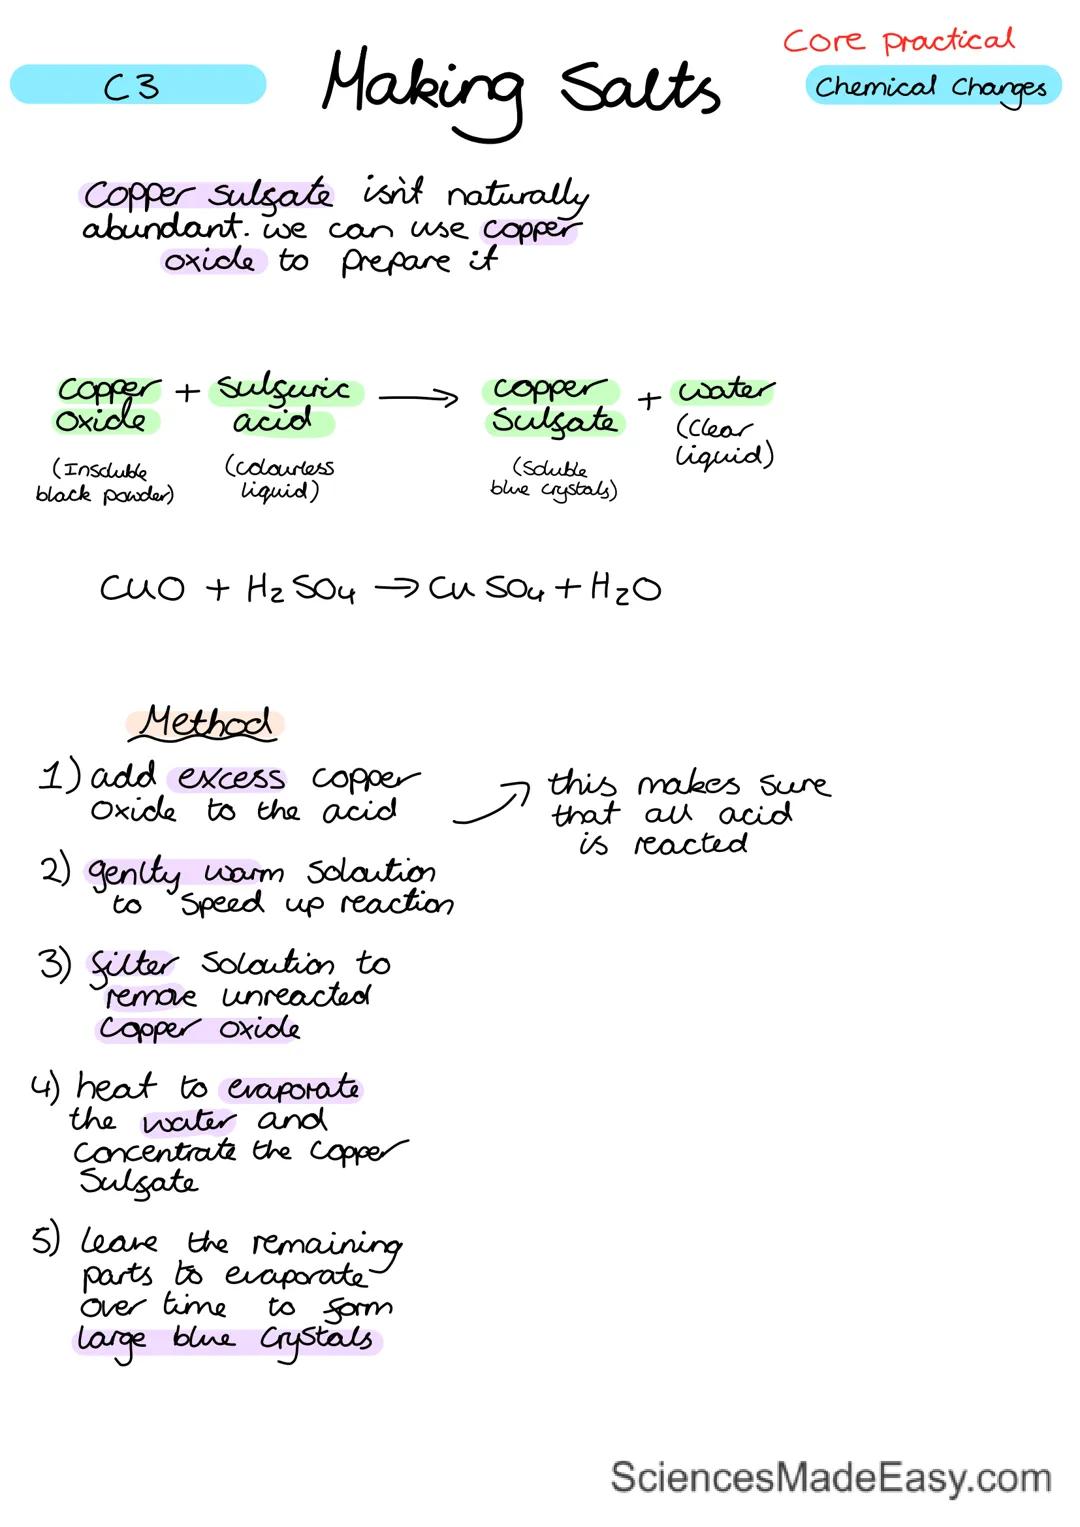 Core practical
C3
Making Salts
Chemical Changes
Copper sulfate isn't naturally
abundant. we can use copper
oxide to prepare it
copper + sulfuric → copper + water
oxide acid sulfate (clear
liquid)
(Insoluble (colourless (soluble
black powder) liquid) blue crystals)
CuO + H₂SO₄ → CuSO₄ + H₂O
Method
1) add excess copper
oxide to the acid
this makes sure
that all acid
is reacted
2) genlty warm soloution
to speed up reaction
3) filter soloution to
remove unreacted
copper oxide
4) heat to evaporate
the water and
concentrate the copper
sulfate
5) leave the remaining
parts to evaporate
over time to form
large blue crystals
SciencesMadeEasy.com